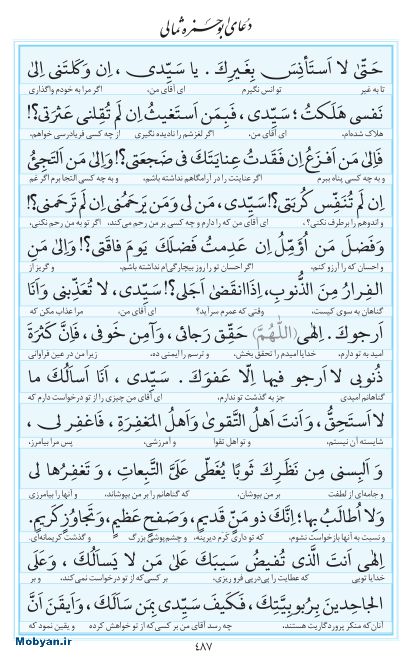 دُعای ابوحمزه ثمالی
حَتّىٰ لا اَستَأنِسَ بِغَيرِكَ . يا سَيِّدى ، اِن وَكَلتَنى اِلىٰ
تا به غیر تو انس نگیرم ای آقای من، اگر مرا به خودم واگذاری
نَفسى هَلَكتُ؛ سَيِّدى ، فَبِمَن اَستَغيثُ اِن لَم تُقِلنى عَثرَتى؟!
هلاک شده‌ام. ای آقای من، اگر لغزشم را نادیده نگیری از چه کسی فریادرسی خواهم،
فَاِلىٰ مَن اَفزَعُ اِن فَقَدتُ عِنايَتَكَ فى ضَجعَتى؟! وَاِلىٰ مَن اَلتَجِئُ
و به چه کسی پناه ببرم اگر عنایتت را در آرامگاهم نداشته باشم، و به چه کسی التجا برم اگر غم
اِن لَم تُنَفِّس كُربَتى؟! سَيِّدى، مَن لى وَمَن يَرحَمُنى اِن لَم تَرحَمنى؟!
و اندوهم را برطرف نکنی؟، ای آقای من که را دارم و چه کسی بر من رحم می‌کند، اگر تو به من رحم نکنی،
وَفَضلَ مَن اُؤَمِّلُ اِن عَدِمتُ فَضلَكَ يَومَ فاقَتى؟! وَاِلىٰ مَنِ
و احسان که را آرزو کنم، اگر احسان تو را روز بیچارگی‌ام نداشته باشم، و گریز از
الفِرارُ مِنَ الذُّنوبِ، اِذَا انقَضىٰ اَجَلى؟! سَيِّدى، لا تُعَذِّبنى وَاَنَا
گناهان به سوی کیست، وقتی که عمرم سرآید؟ ای آقای من، مرا عذاب مکن که
اَرجوكَ . اِلٰهى (اَللّٰهُمَّ) حَقِّق رَجائى، وَآمِن خَوفى ، فَاِنَّ كَثرَةَ
امید به تو دارم، خدایا امیدم را تحقق بخش، و ترسم را ایمنی ده، زیرا من در عین فراوانی
ذُنوبى لا اَرجو فيها اِلّا عَفوَكَ . سَيِّدى ، اَنَا اَسأَلُكَ ما
گناهانم امیدی جز به گذشت تو ندارم، ای آقای من چیزی را از تو درخواست دارم که
لا اَستَحِقُّ، وَاَنتَ اَهلُ التَّقوىٰ وَاَهلُ المَغفِرَةِ ، فَاغفِر لى ،
شایسته آن نیستم، و تو اهل تقوا و آمرزشی، پس مرا بیامرز،
وَ اَلبِسنى مِن نَظَرِكَ ثَوبًا يُغَطّى عَلَىَّ التَّبِعاتِ ، وَ تَغفِرُها لى
و جامه‌ای از لطفت بر من بپوشان، که گناهانم را بر من بپوشاند، و آنها را بیامرزی
وَلا اُطالَبُ بِها؛ اِنَّكَ ذو مَنٍّ قَديمٍ، وَصَفحٍ عَظيمٍ، وَتَجاوُزٍ كَريمٍ.
و نسبت به آنها بازخواست نشوم، که تو داری کرم دیرینه، و چشم‌پوشی بزرگ و گذشت کریمانه‌ای.
اِلٰهى اَنتَ الَّذى تُفيضُ سَيبَكَ عَلىٰ مَن لا يَسأَلُكَ ، وَعَلَى
خدایا تویی که عطایت را پی‌درپی فرو ریزی، بر کسی که از تو درخواست نمی‌کند، و بر
الجاحِدينَ بِرُبوبِيَّتِكَ ، فَكَيفَ سَيِّدى بِمَن سَأَلَكَ، وَاَيقَنَ اَنَّ
آنان که منکر پروردگاریت هستند، چه رسد آقای من بر کسی که از تو خواهش کرده و یقین نمود که
۴۸۷
Mobyan.ir